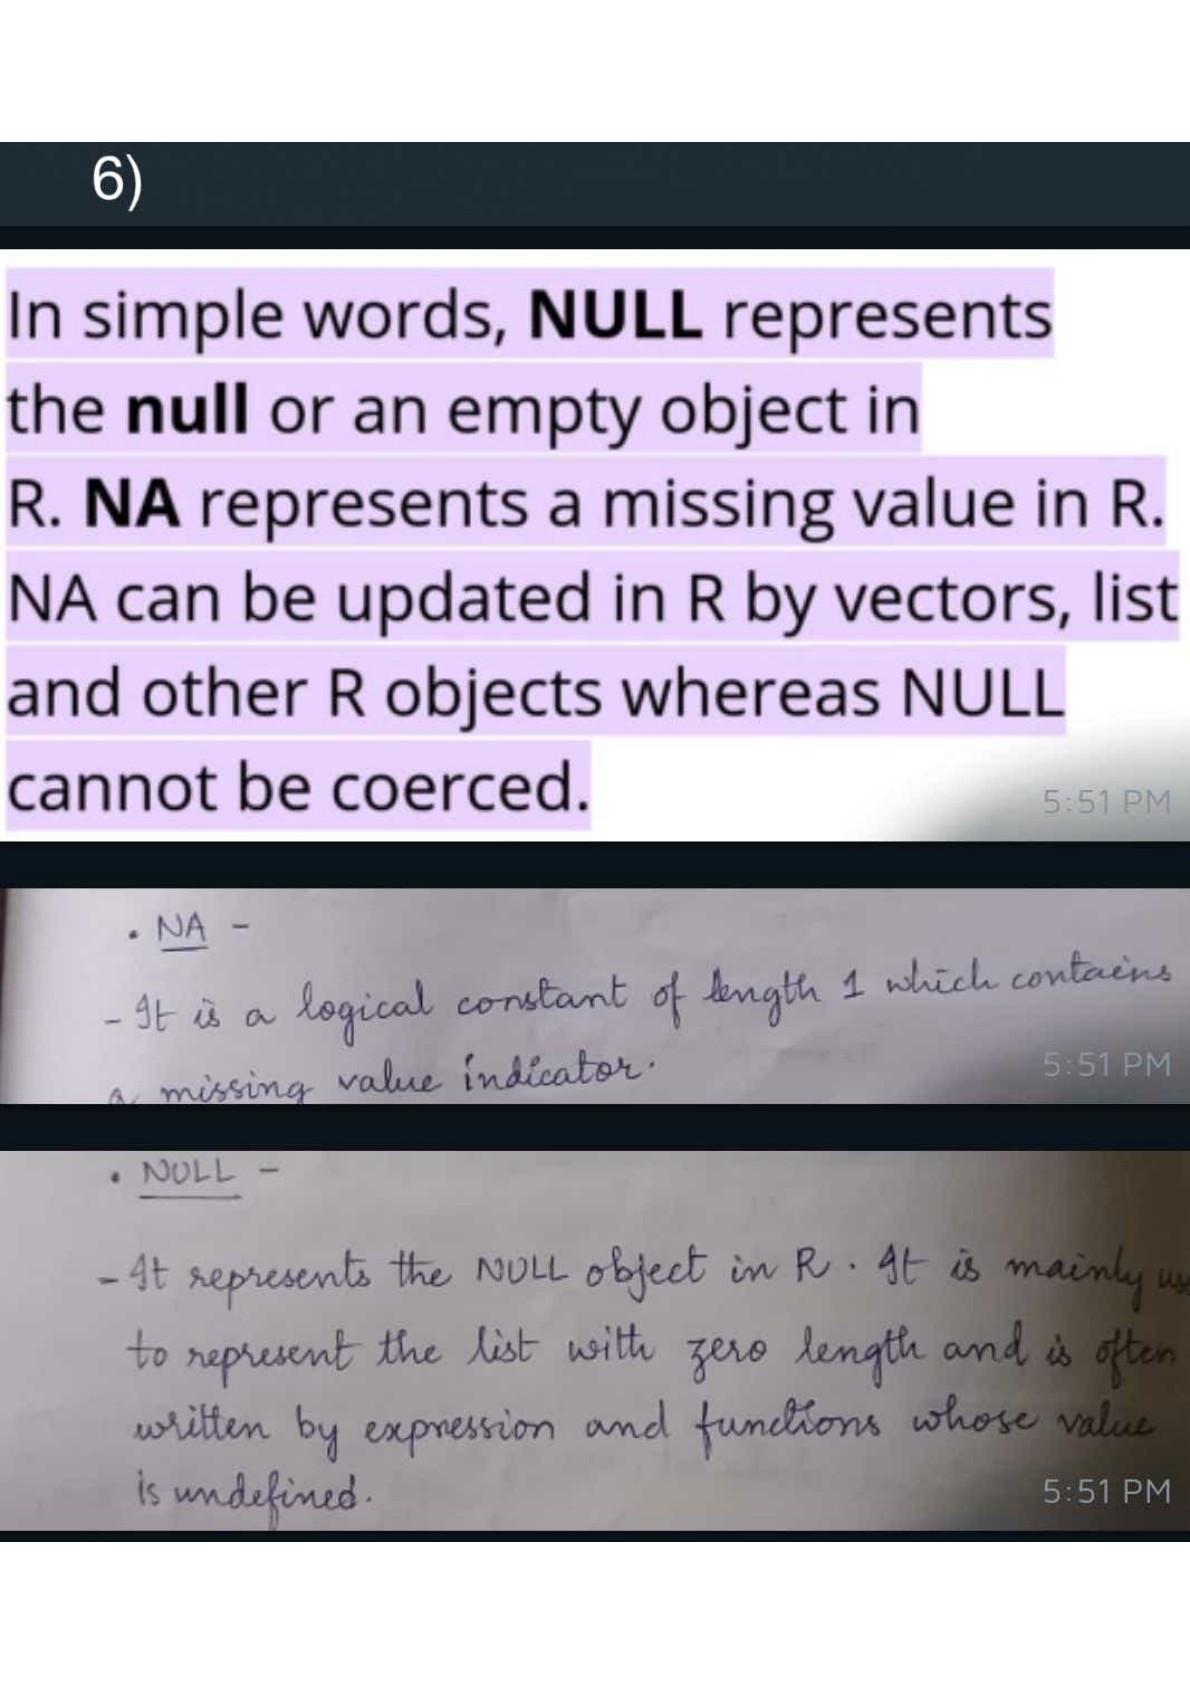 6)
In simple words, NULL represents
the null or an empty object in
R. NA represents a missing value in R.
NA can be updated in R by vectors, list
and other R objects whereas NULL
cannot be coerced.
5:51 PM
• NA -
- It is a logical constant of length 1 which contains
a missing value indicator.
5:51 PM
• NULL -
- It represents the NULL object in R. It is mainly
to represent the list with zero length and is often
written by expression and functions whose value
is undefined.
5:51 PM